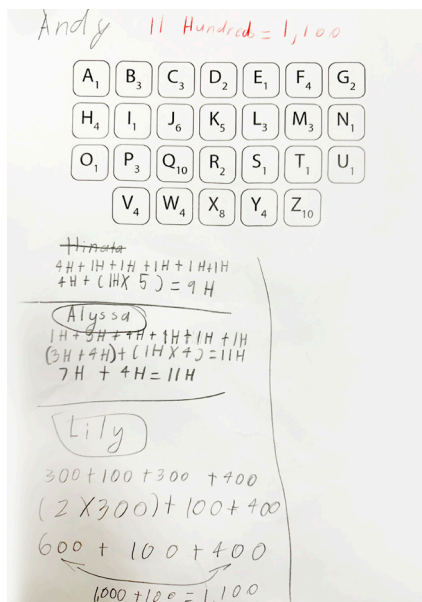 Andy 11 Hundred = 1,100
A1 B3 C3 D2 E1 F4 G2
H4 I1 J6 K5 L3 M3 N1
O1 P3 Q10 R2 S1 T1 U1
V4 W4 X8 Y4 Z10
Hinata
4H + 1H + 1H + 1H + 1H + 1H
4H + (1H X 5) = 9H
Alyssa
1H + 3H + 4H + 1H + 1H + 1H
(3H + 4H) + (1H X 4) = 11H
7H + 4H = 11H
Lily
300 + 100 + 300 + 400
(2 X 300) + 100 + 400
600 + 100 + 400
1,000 + 100 = 1,100